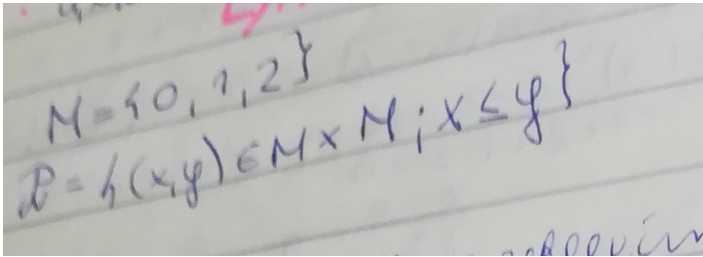 M = {0, 1, 2}
R = {(x,y) ∈ M × M ; x ≤ y}